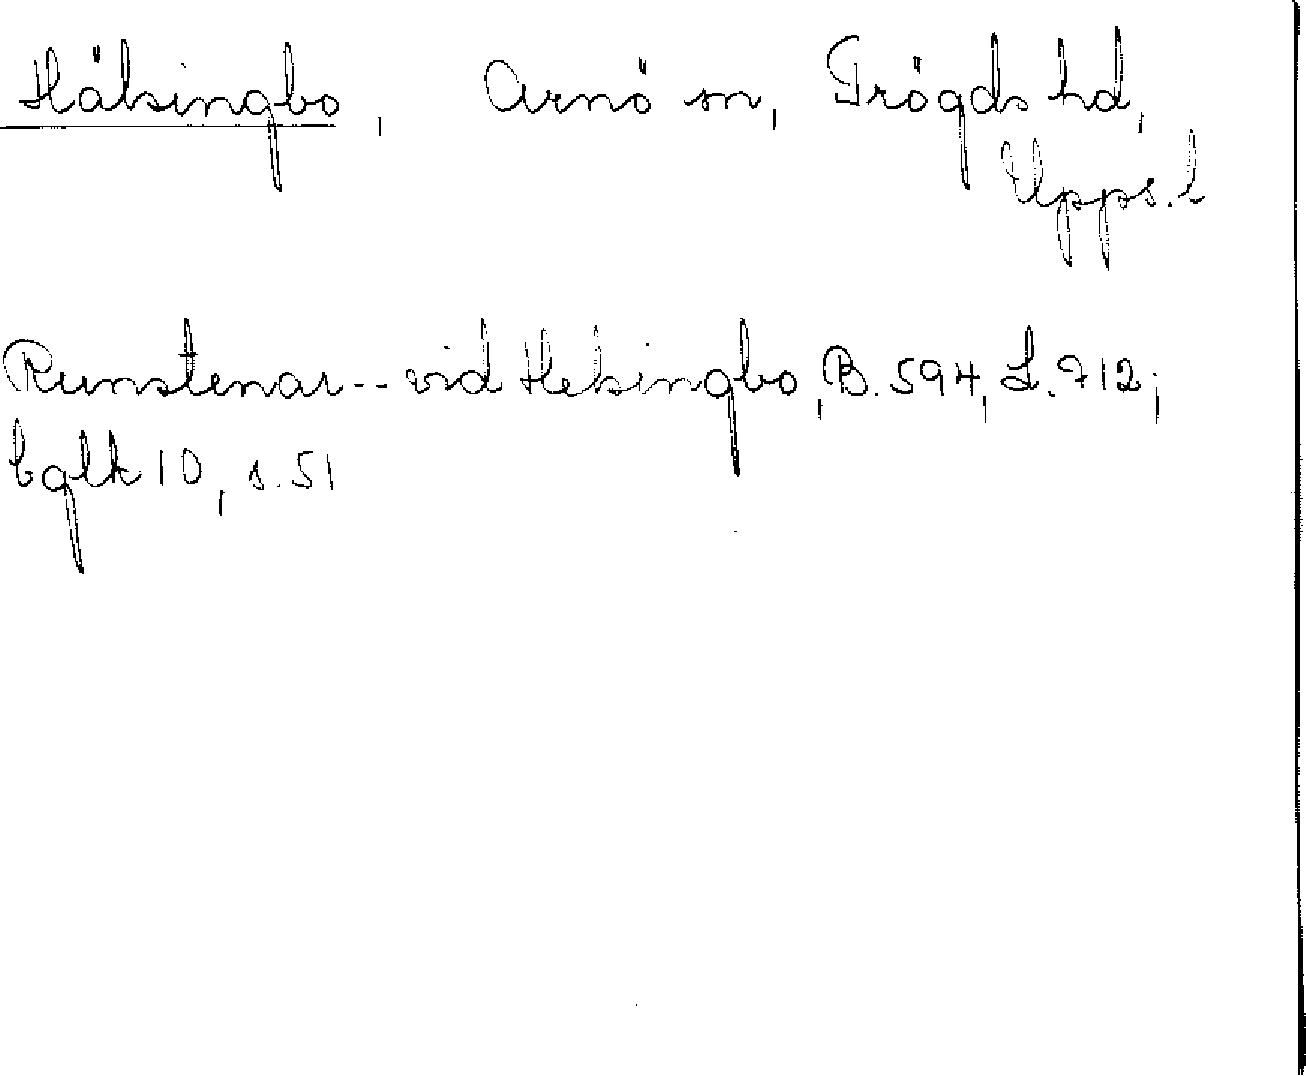 Hälsingbo, Arnö sn, Trögds hd,
Upps. l
Runstenar -- vid Helsingbo, B. 594, L. 712;
bglk 10, s. 51